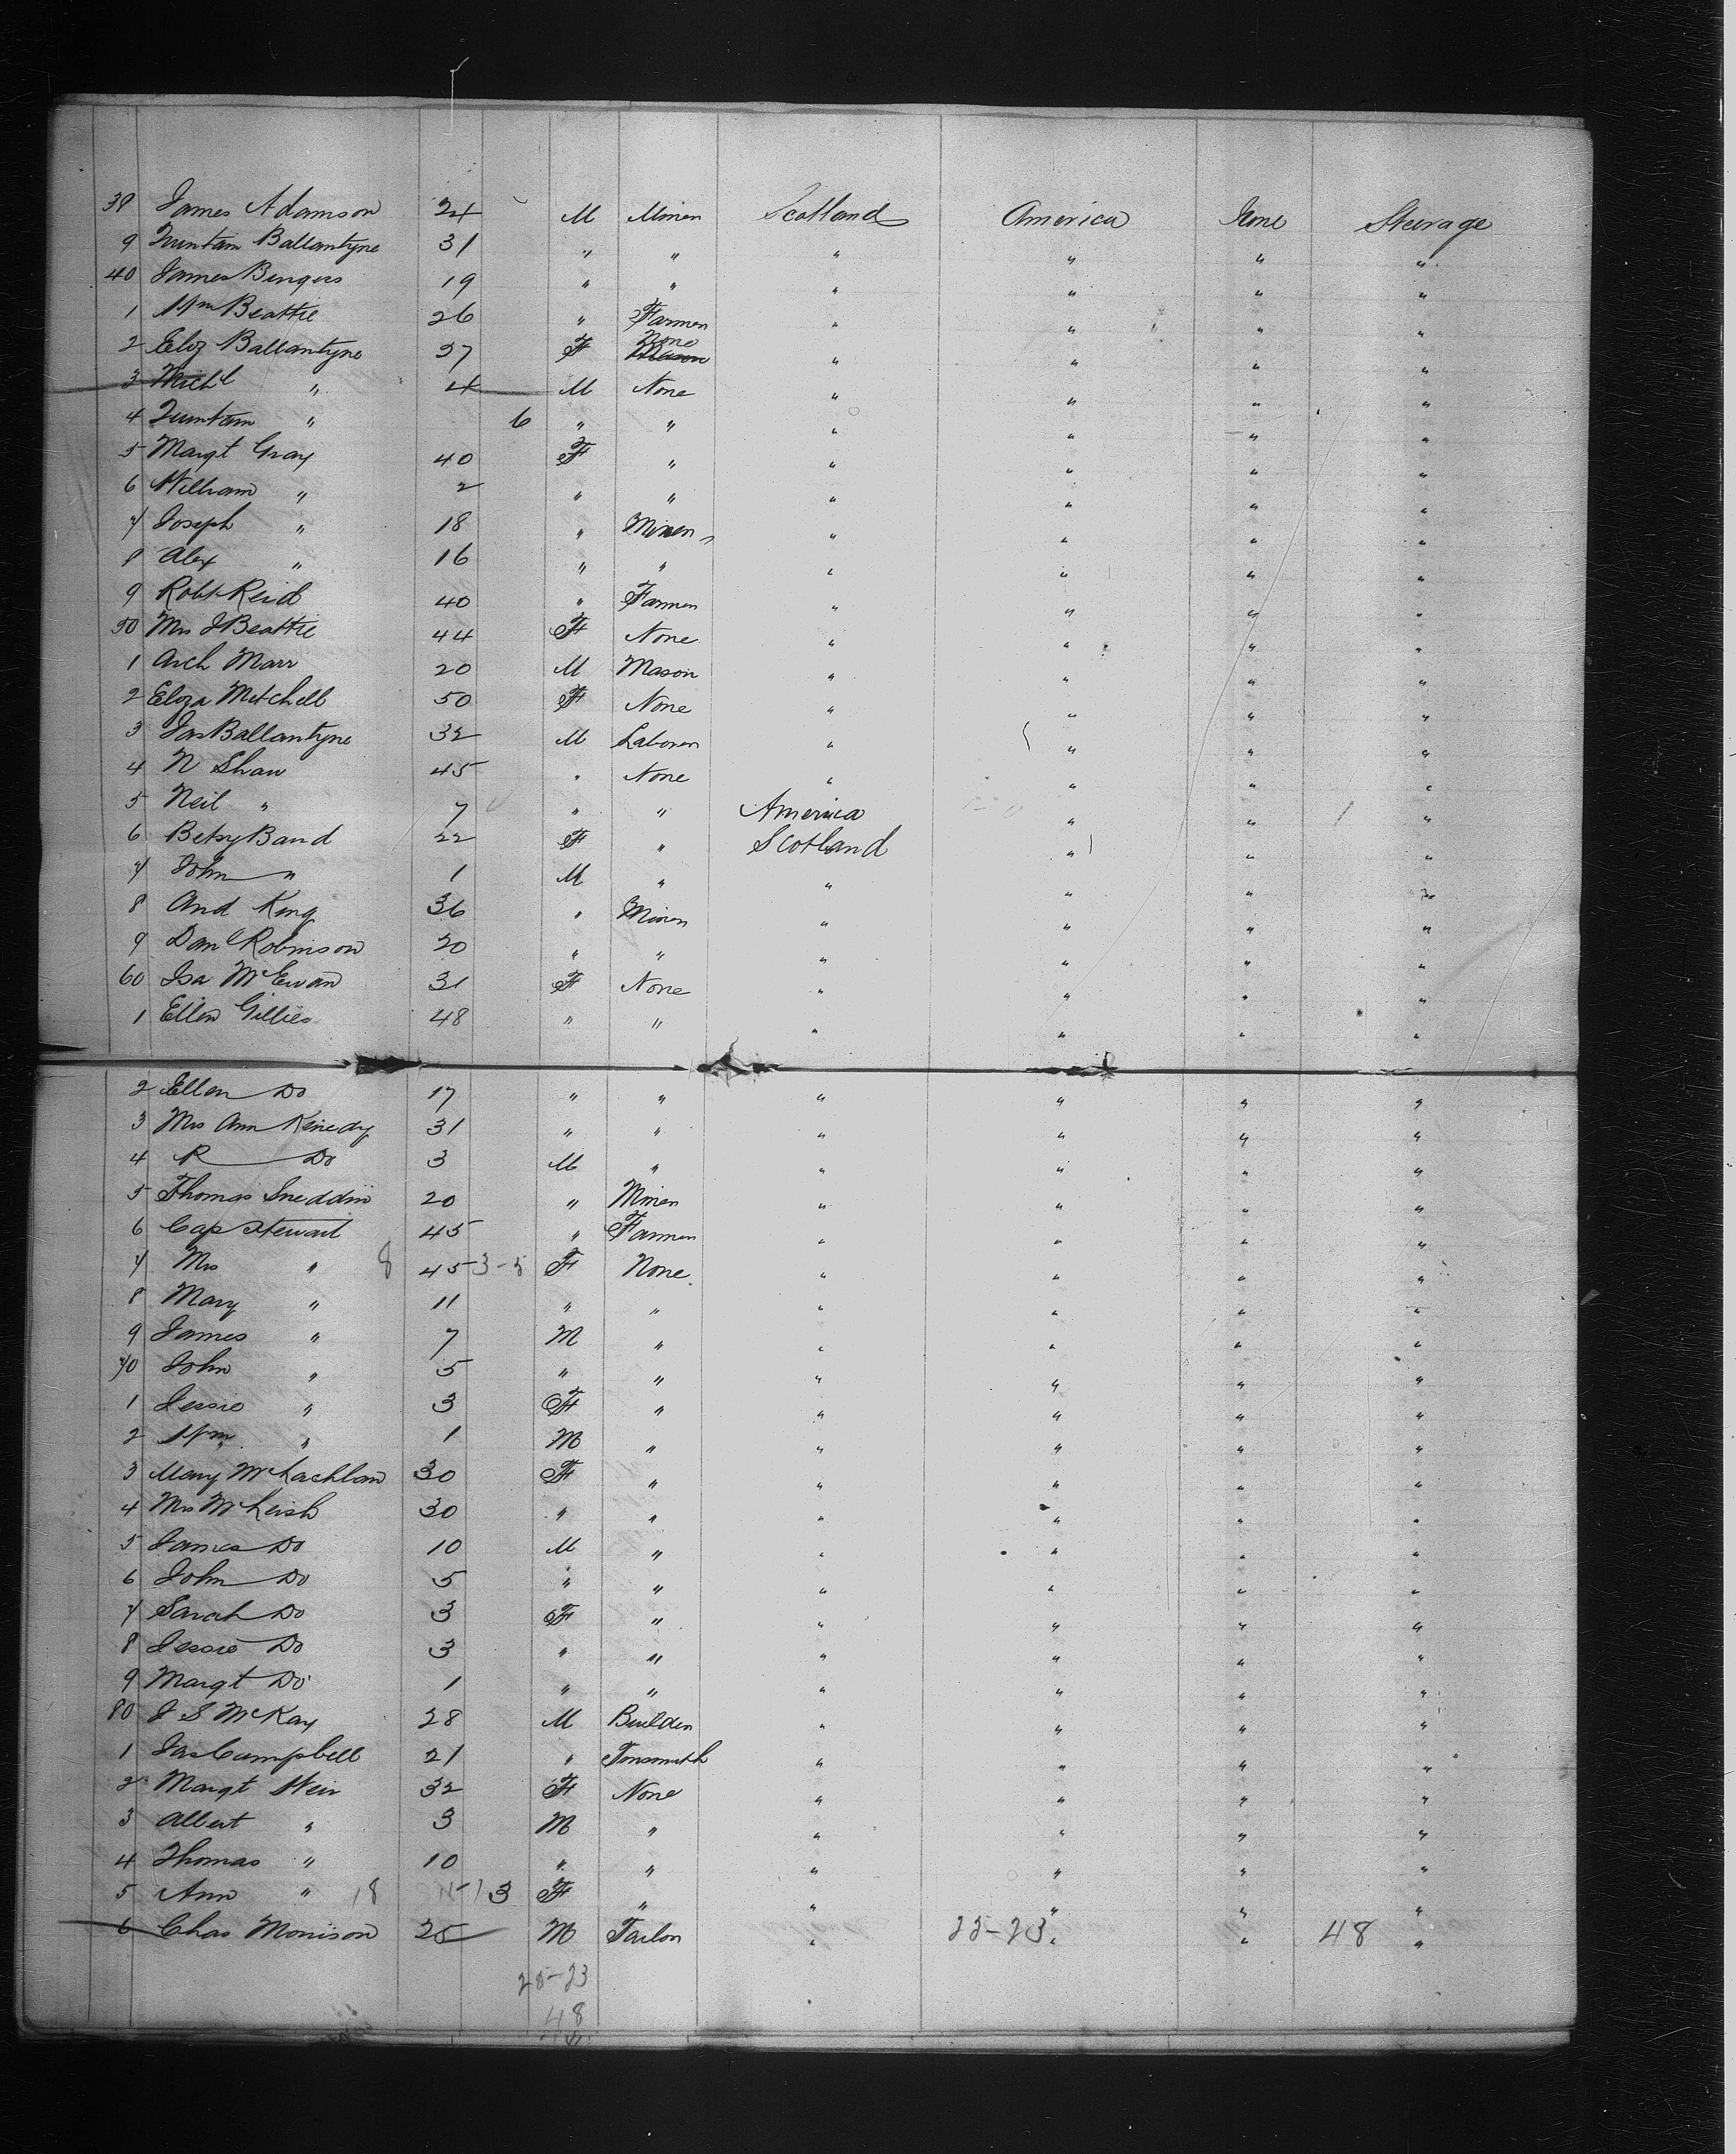 38 James Adamson 24 M Miner Scotland America None Steerage
9 Quintain Ballantyne 31 " " " " " "
40 James Bengers 19 " " " " " "
1 Wm Beattie 26 " Farmer " " " "
2 Eliz Ballantyne 37 F None Mason " " " "
3 Michl " 4 M None " " " "
4 Quintain " 6 " " " " " "
5 Margt Gray 40 F " " " " "
6 William " 2 " " " " " "
7 Joseph " 18 " Miner " " " "
8 Alex " 16 " " " " " "
9 Robt Reid 40 " Farmer " " " "
50 Mrs J Beattie 44 F None " " " "
1 Arch Marr 20 M Mason " " " "
2 Eliza Mitchell 50 F None " " " "
3 Jas Ballantyne 32 M Laborer " " " "
4 N Shaw 45 " None " " " "
5 Neil " 7 " " America " " "
6 Betsy Band 22 F " Scotland " " "
7 John " 1 M " " " " "
8 And King 36 " Miner " " " "
9 Danl Robinson 20 " " " " " "
60 Isa McEwan 31 F None " " " "
1 Ellen Gillies 48 " " " " " "
2 Ellen Do 17 " " " " " "
3 Mrs Ann Kinedy 31 " " " " " "
4 R Do 3 M " " " " "
5 Thomas Sneddin 20 " Miner " " " "
6 Cap Stewart 45 " Farmer " " " "
7 Mrs " 8 45 3-5 F None " " " "
8 Mary " 11 " " " " " "
9 James " 7 M " " " " "
70 John " 5 " " " " " "
1 Jessie " 3 F " " " " "
2 Wm " 1 M " " " " "
3 Mary McLachlan 30 F " " " " "
4 Mrs McLeish 30 " " " " " "
5 James Do 10 M " " " " "
6 John Do 5 " " " " " "
7 Sarah Do 3 F " " " " "
8 Jessie Do 3 " " " " " "
9 Margt Do 1 " " " " " "
80 J S McKay 28 M Builder " " " "
1 Jas Campbell 21 " Tinsmith " " " "
2 Margt Weir 32 F None " " " "
3 Albert " 3 M " " " " "
4 Thomas " 10 " " " " " "
5 Ann " 18 3 F " " " " "
6 Chas Morrison 25 M Tailor " 25-23 " " 48 "
25-23
48